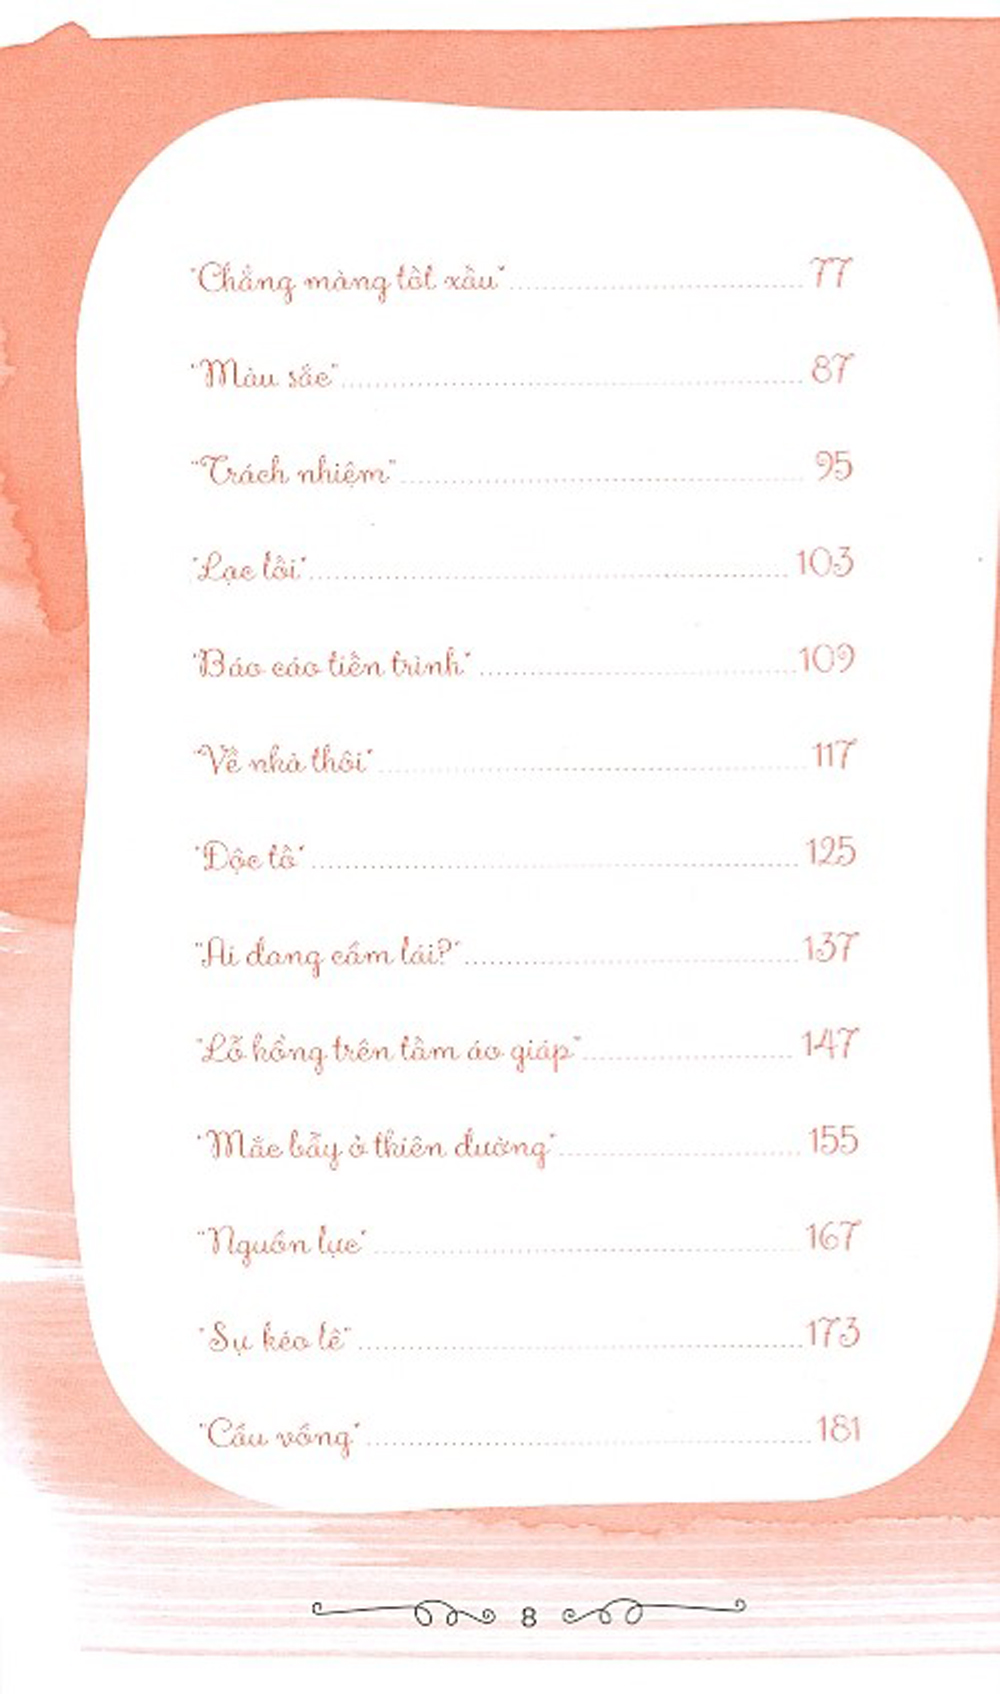 "Chẳng màng tốt xấu" 77
"Màu sắc" 87
"Trách nhiệm" 95
"Lạc lối" 103
"Báo cáo tiến trình" 109
"Về nhà thôi" 117
"Độc tố" 125
"Ai đang cầm lái?" 137
"Lỗ hổng trên tấm áo giáp" 147
"Mắc bẫy ở thiên đường" 155
"Nguồn lực" 167
"Sự kéo lê" 173
"Cầu vồng" 181
8